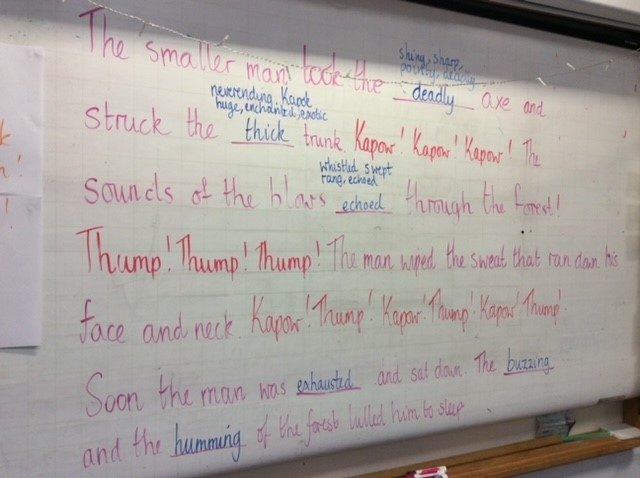 shiny, sharp,
pointy, deadly
The smaller man took the deadly axe and
neverending, Kapok
huge, enchanted, exotic
struck the thick trunk. Kapow! Kapow! Kapow! The
whistled swept
rang, echoed
sounds of the blows echoed through the forest!
Thump! Thump! Thump! The man wiped the sweat that ran down his
face and neck. Kapow! Thump! Kapow! Thump! Kapow! Thump!
Soon the man was exhausted and sat down. The buzzing
and the humming of the forest lulled him to sleep